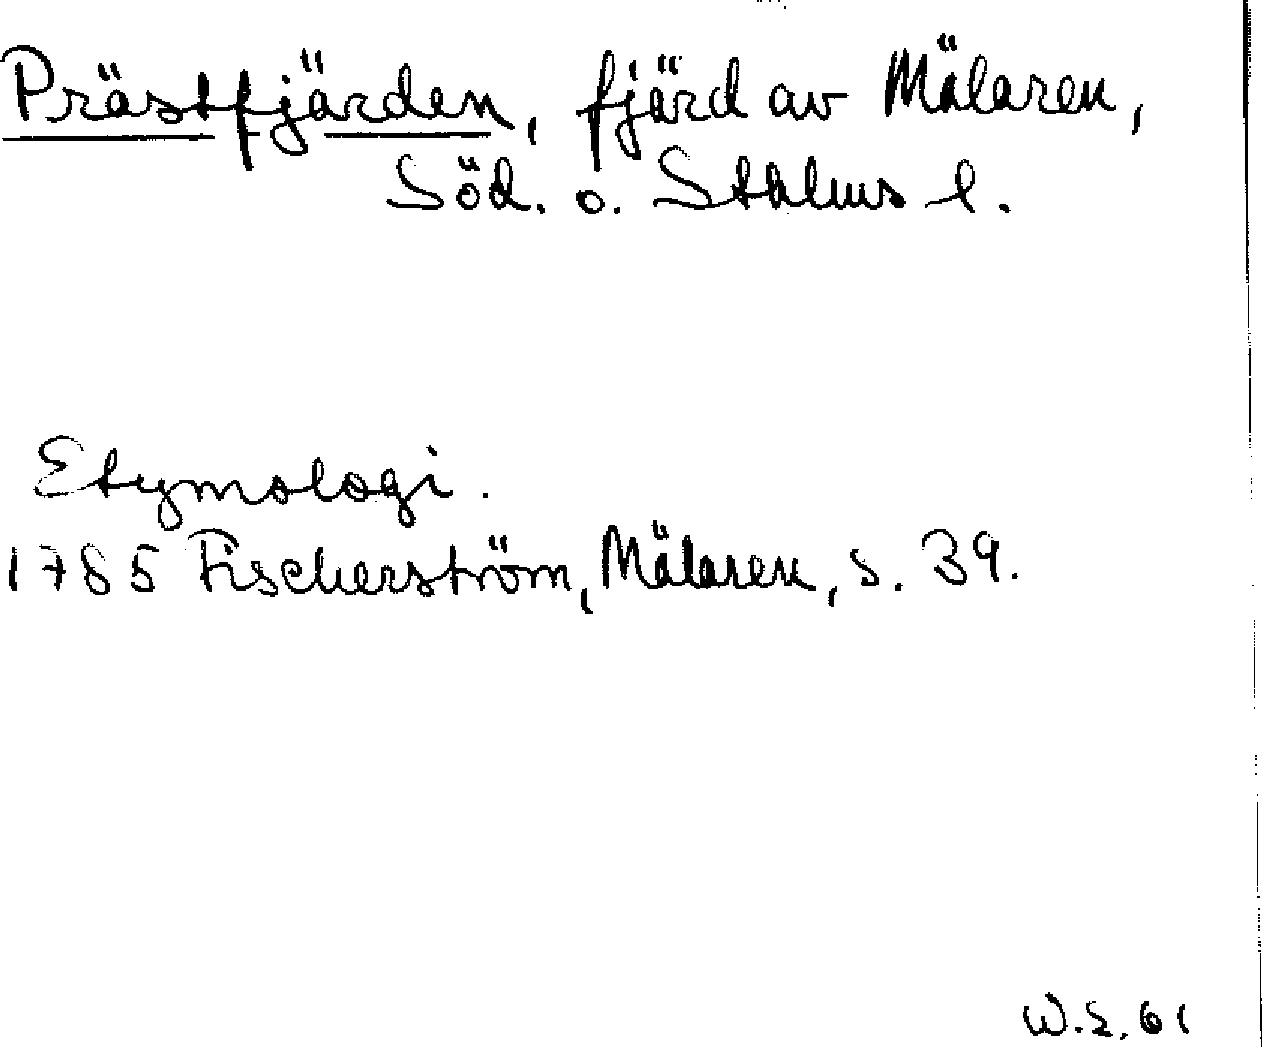 Prästfjärden, fjärd av Mälaren,
Söd. o. Sthlms l.
Etymologi.
1785 Fischerström, Mälaren, s. 39.
W.S. 61